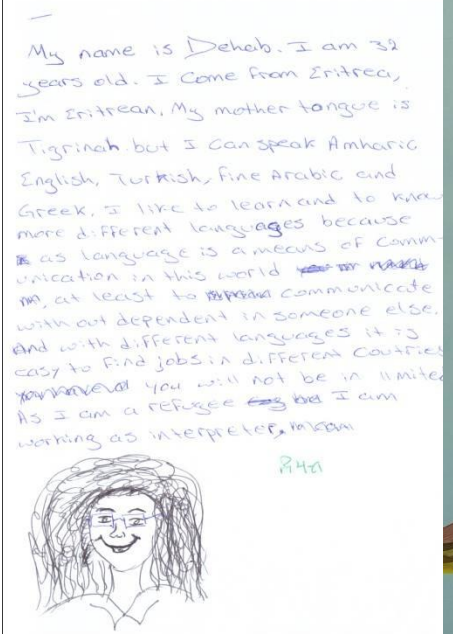 My name is Dehab. I am 32
years old. I Come from Eritrea,
I'm Eritrean, My mother tongue is
Tigrinah but I Can speak Amharic
English, Turkish, fine Arabic and
Greek. I like to learn and to know
more different languages because
as language is a means of comm-
unication in this world
at least to communicate
with out dependent in someone else.
And with different languages it is
easy to find jobs in different Coutries
you will not be in limited
As I am a refugee I am
working as interpreter,